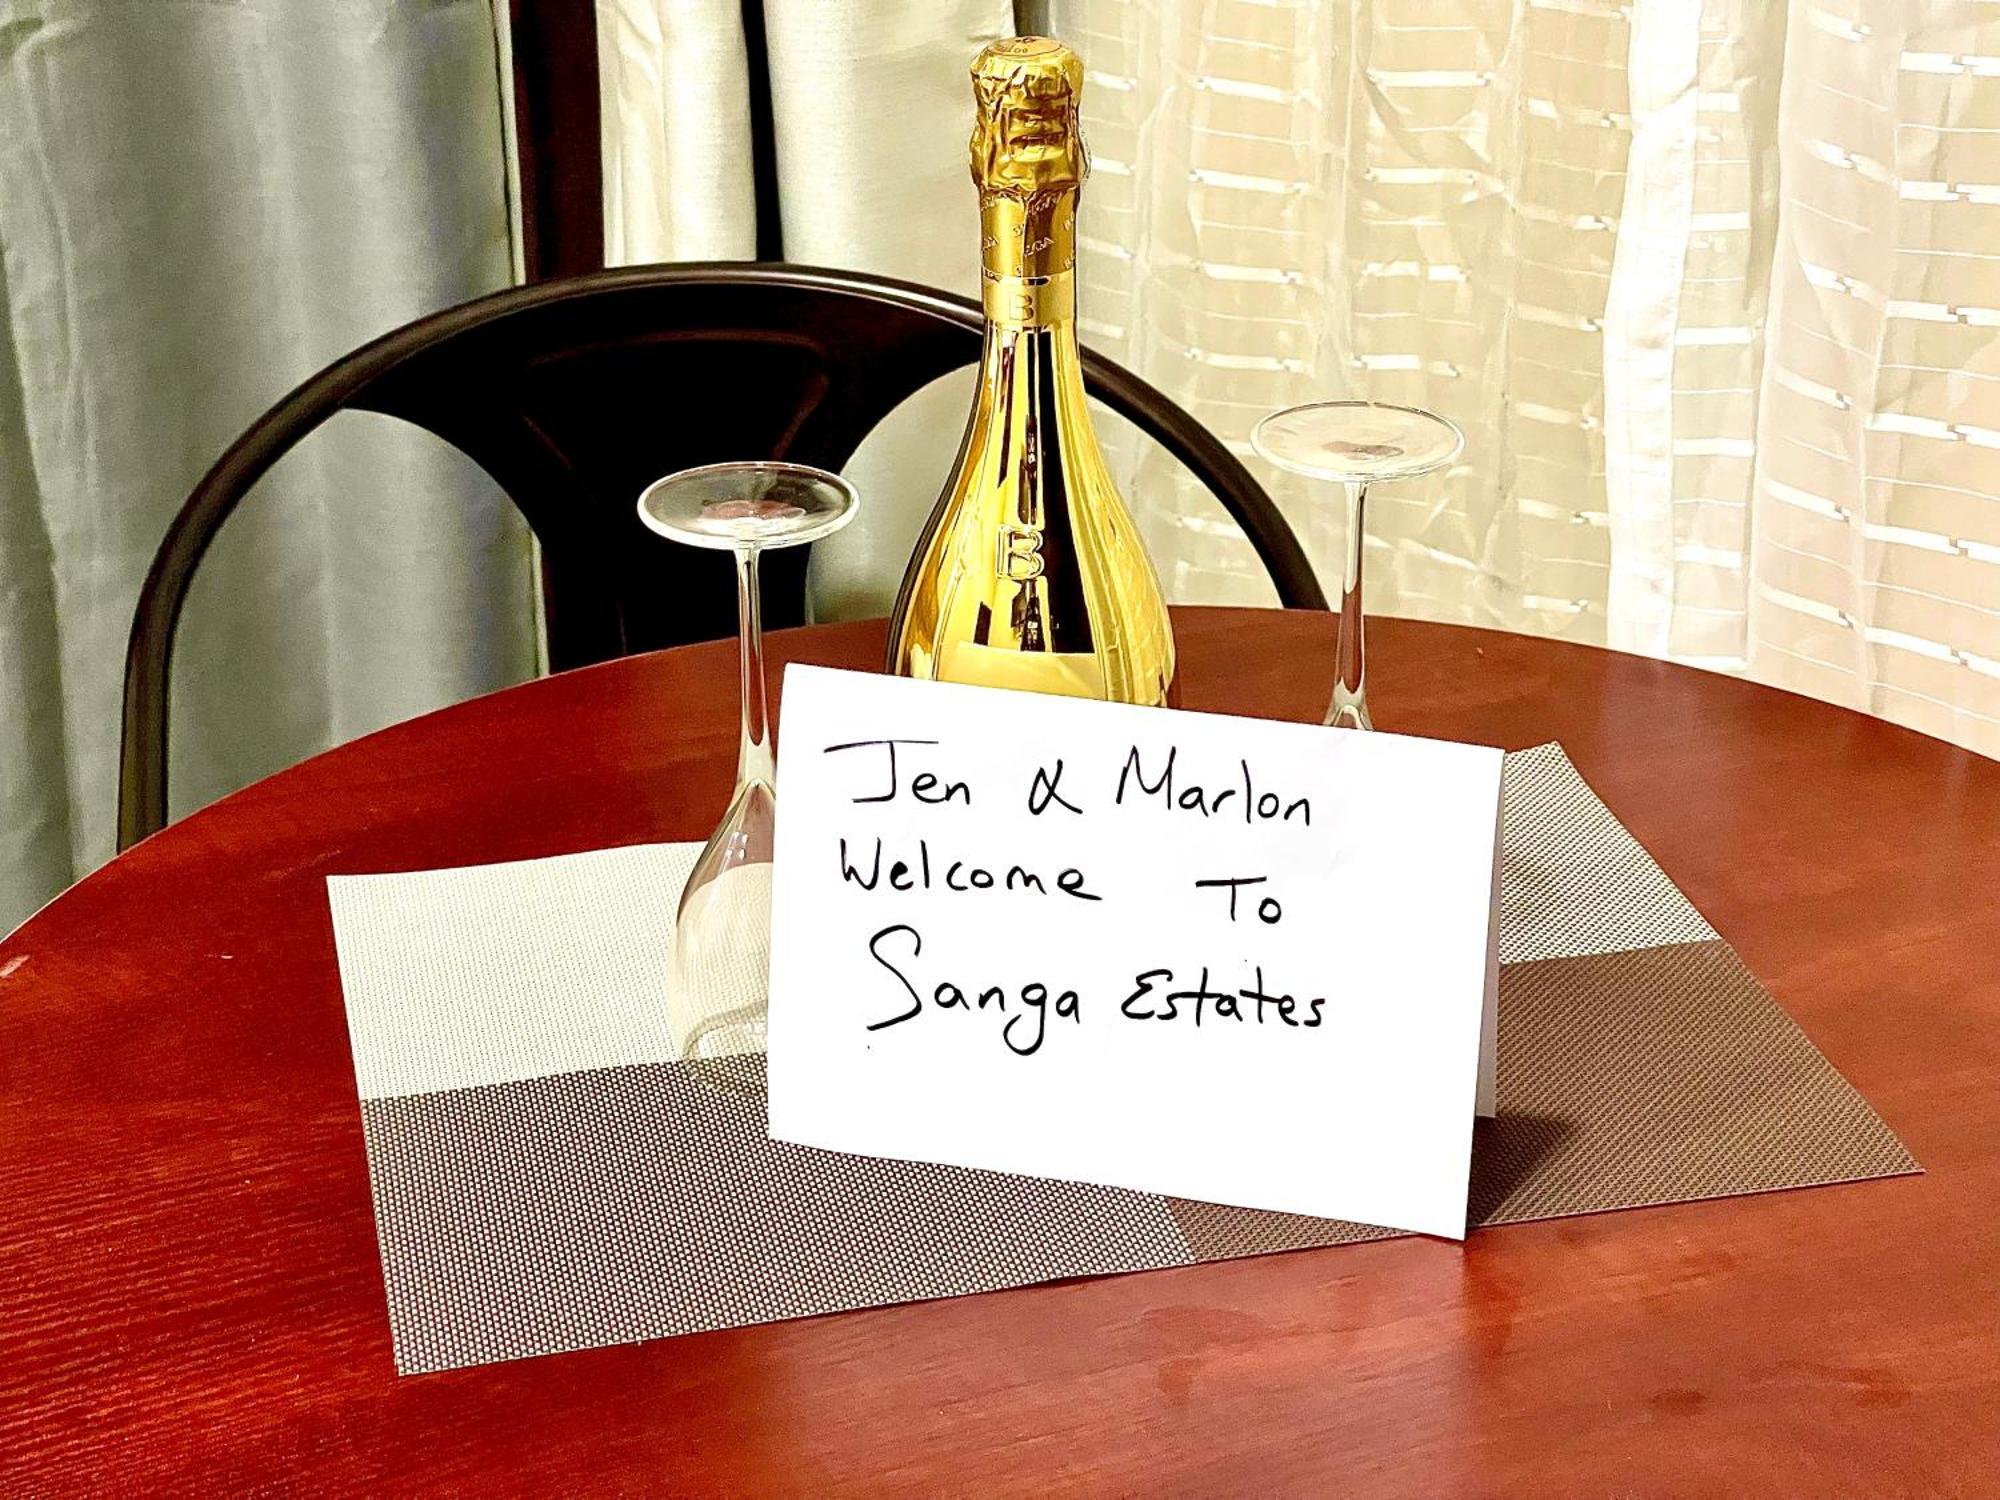 B
B
Jen & Marlon
Welcome To
Sanga Estates